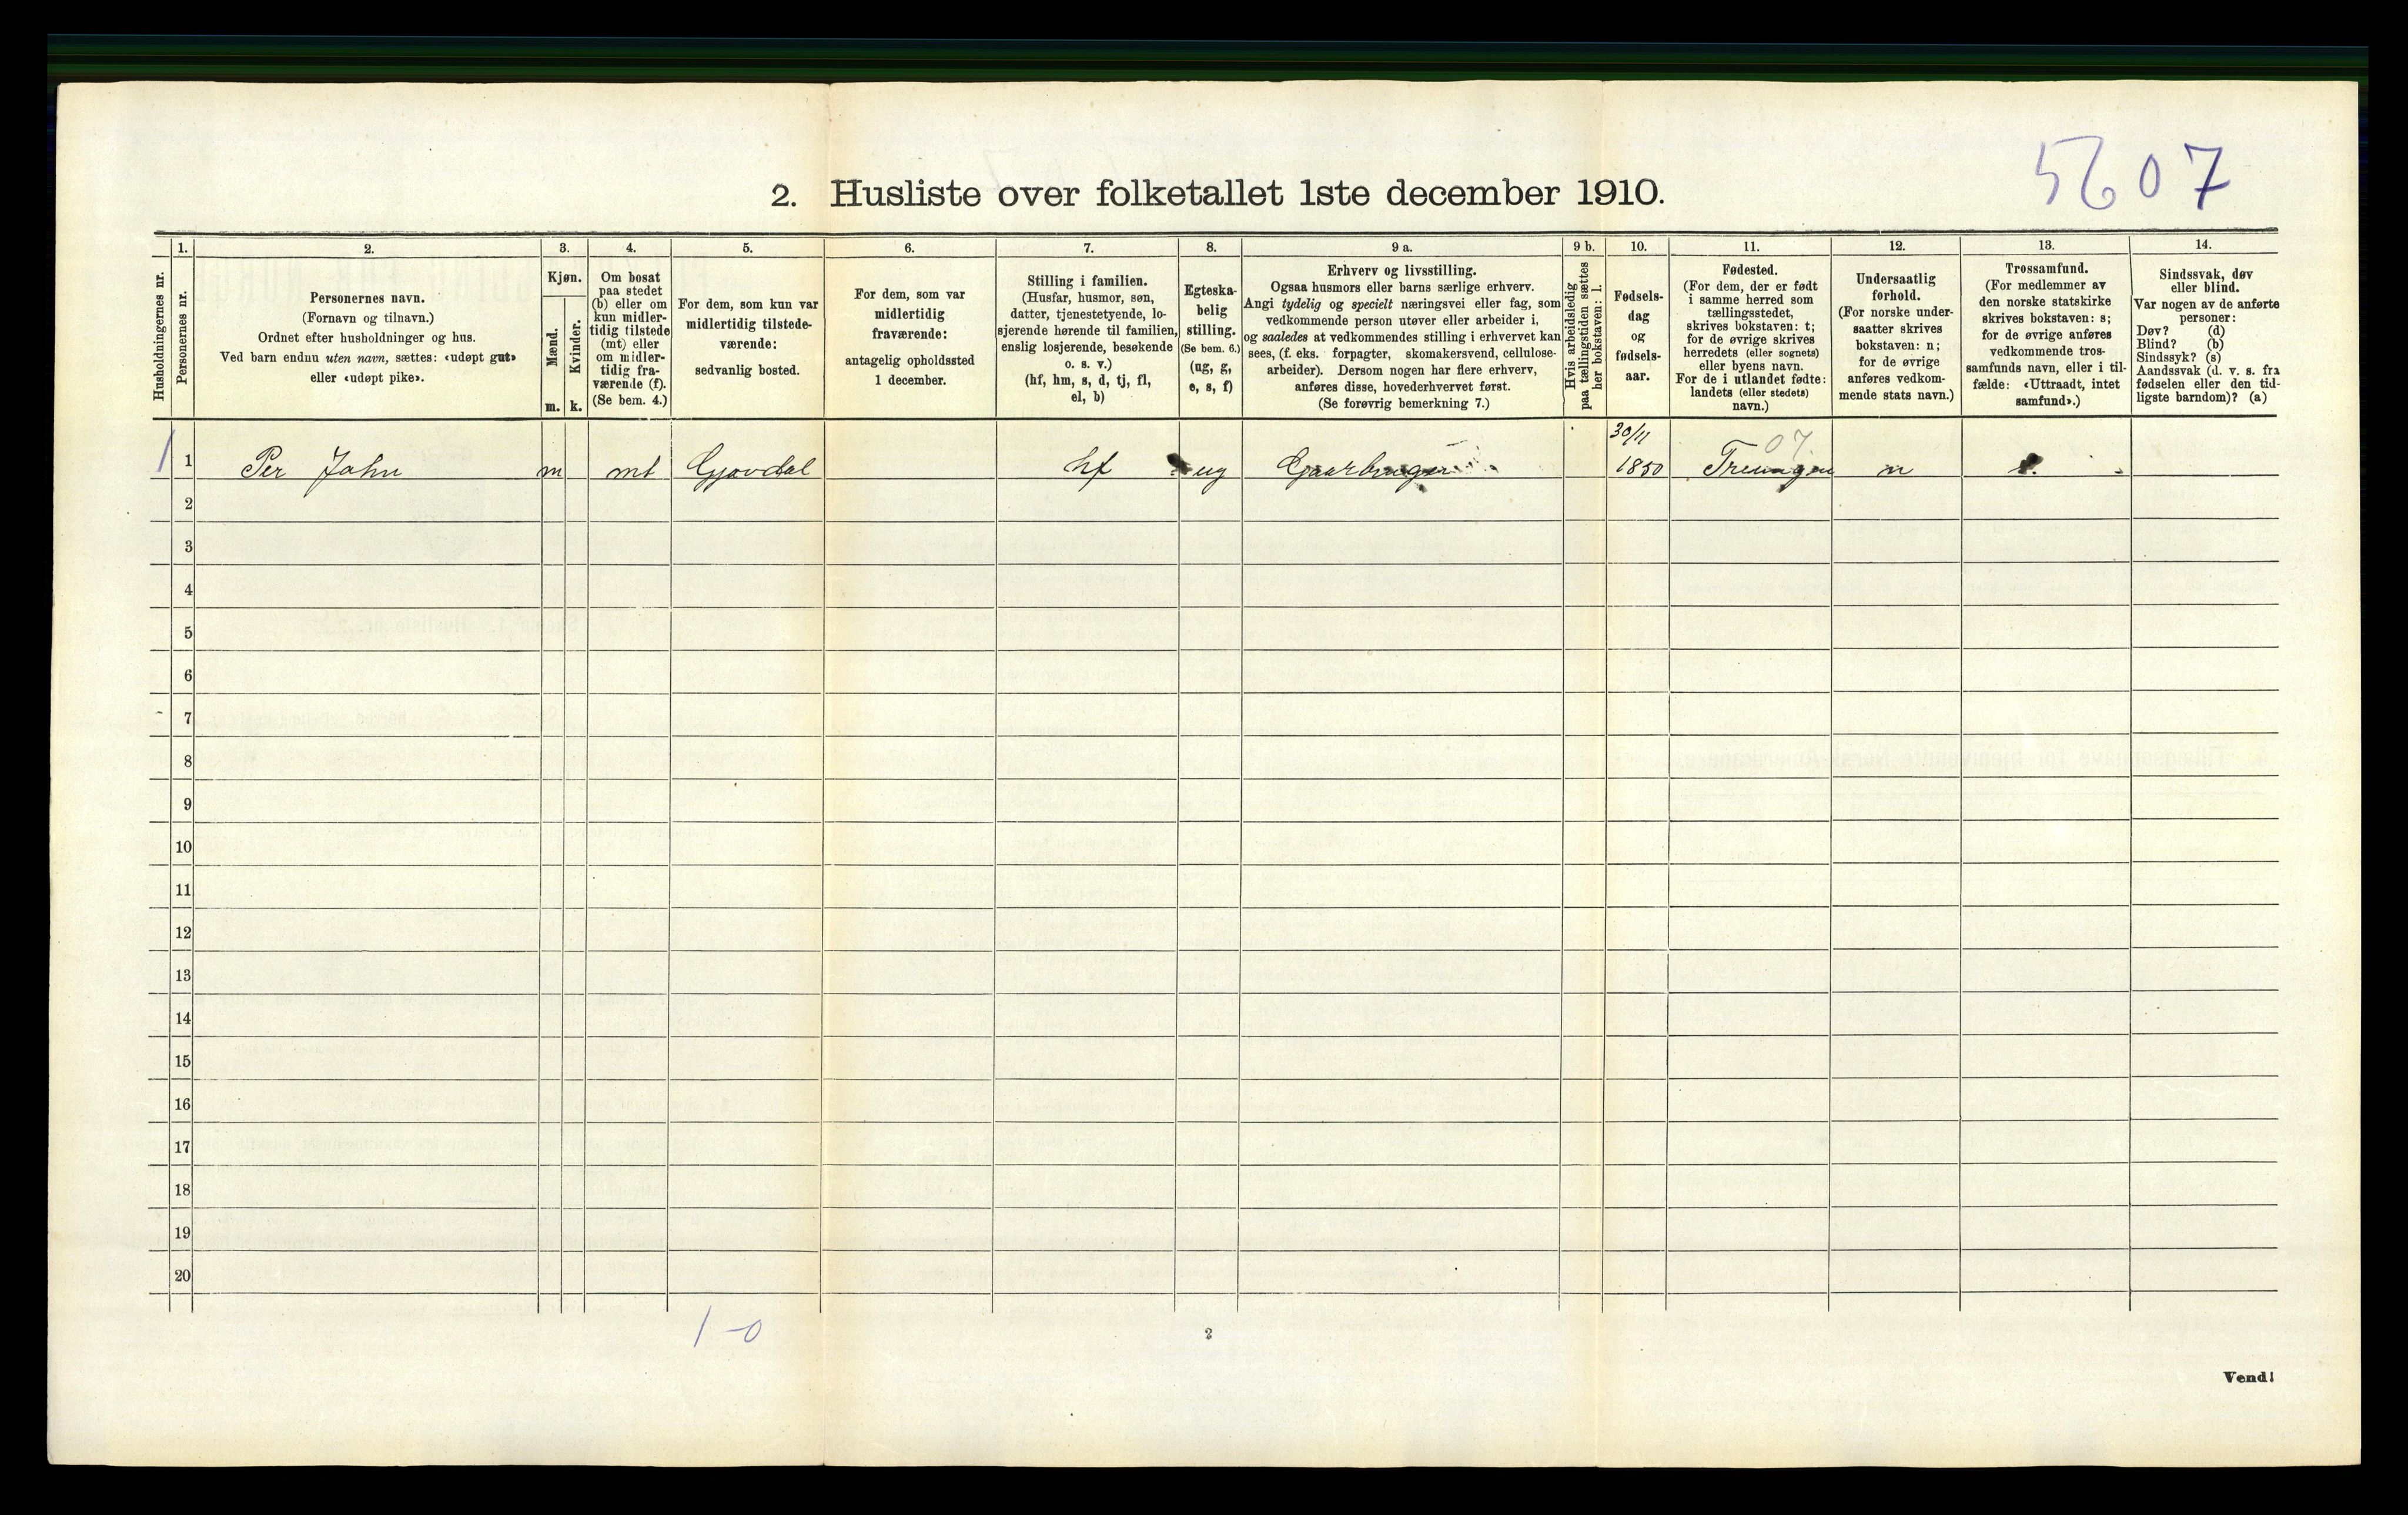 5607
2. Husliste over folketallet 1ste december 1910.
Husholdningernes nr.
1.
Personernes nr.
2.
Personernes navn.
(Fornavn og tilnavn.)
Ordnet efter husholdninger og hus.
Ved barn endnu uten navn, sættes: «udøpt gut»
eller «udøpt pike».
3.
Kjøn.
Mænd.
Kvinder.
m. k.
4.
Om bosat
paa stedet
(b) eller om
kun midler-
tidig tilstede
(mt) eller
om midler-
tidig fra-
værende (f).
(Se bem. 4.)
5.
For dem, som kun var
midlertidig tilstede-
værende:
sedvanlig bosted.
6.
For dem, som var
midlertidig
fraværende:
antagelig opholdssted
1 december.
7.
Stilling i familien.
(Husfar, husmor, søn,
datter, tjenestetyende, lo-
sjerende hørende til familien,
enslig losjerende, besøkende
o. s. v.)
(hf, hm, s, d, tj, fl,
el, b)
8.
Egteska-
belig
stilling.
(Se bem. 6.)
(ug, g,
e, s, f)
9 a.
Erhverv og livsstilling.
Ogsaa husmors eller barns særlige erhverv.
Angi tydelig og specielt næringsvei eller fag, som
vedkommende person utøver eller arbeider i,
og saaledes at vedkommendes stilling i erhvervet kan
sees, (f. eks. forpagter, skomakersvend, cellulose-
arbeider). Dersom nogen har flere erhverv,
anføres disse, hovederhvervet først.
(Se forøvrig bemerkning 7.)
9 b.
Hvis arbeidsledig
paa tællingstiden sættes
her bokstaven: l.
10.
Fødsels-
dag
og
fødsels-
aar.
11.
Fødested.
(For dem, der er født
i samme herred som
tællingsstedet,
skrives bokstaven: t;
for de øvrige skrives
herredets (eller sognets)
eller byens navn.
For de i utlandet fødte:
landets (eller stedets)
navn.)
12.
Undersaatlig
forhold.
(For norske under-
saatter skrives
bokstaven: n;
for de øvrige
anføres vedkom-
mende stats navn.)
13.
Trossamfund.
(For medlemmer av
den norske statskirke
skrives bokstaven: s;
for de øvrige anføres
vedkommende tros-
samfunds navn, eller i til-
fælde: «Uttraadt, intet
samfund».)
14.
Sindssvak, døv
eller blind.
Var nogen av de anførte
personer:
Døv? (d)
Blind? (b)
Sindssyk? (s)
Aandssvak (d. v. s. fra
fødselen eller den tid-
ligste barndom)? (a)
30/11 07
1 1 Per John m mt Gjøvdal hf ug Gaarbruger 1850 Treungen n s.
2
3
4
5
6
7
8
9
10
11
12
13
14
15
16
17
18
19
20
1-0
2
Vend!